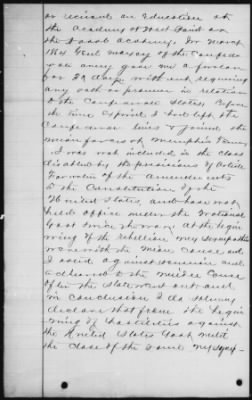 or received an Education at
the Academy at West Point or
the Naval Academy. In March
1864 Genl of the Confed
army gave me a furlough
for 30 days without requiring
any oath or promise in relation
to the Confederate States. Before
the time expired I had left the
Confederate lines & joined the
Union forces at Memphis Tenn
I was not included in the class
disabled by the provisions of Article
Fourteen of the Amendments
to the Constitution of the
United States, and have not
held office under the National
Govt since the war. At the begin
ning of the Rebellion my sympathies
were with the Union Cause and
I voted against secession and
adhered to the Union Cause
after the State went out and
in Conclusion I do solemnly
declare that from the begin
ning of hostilities against
the United States Govt until
the close of the same my symp-